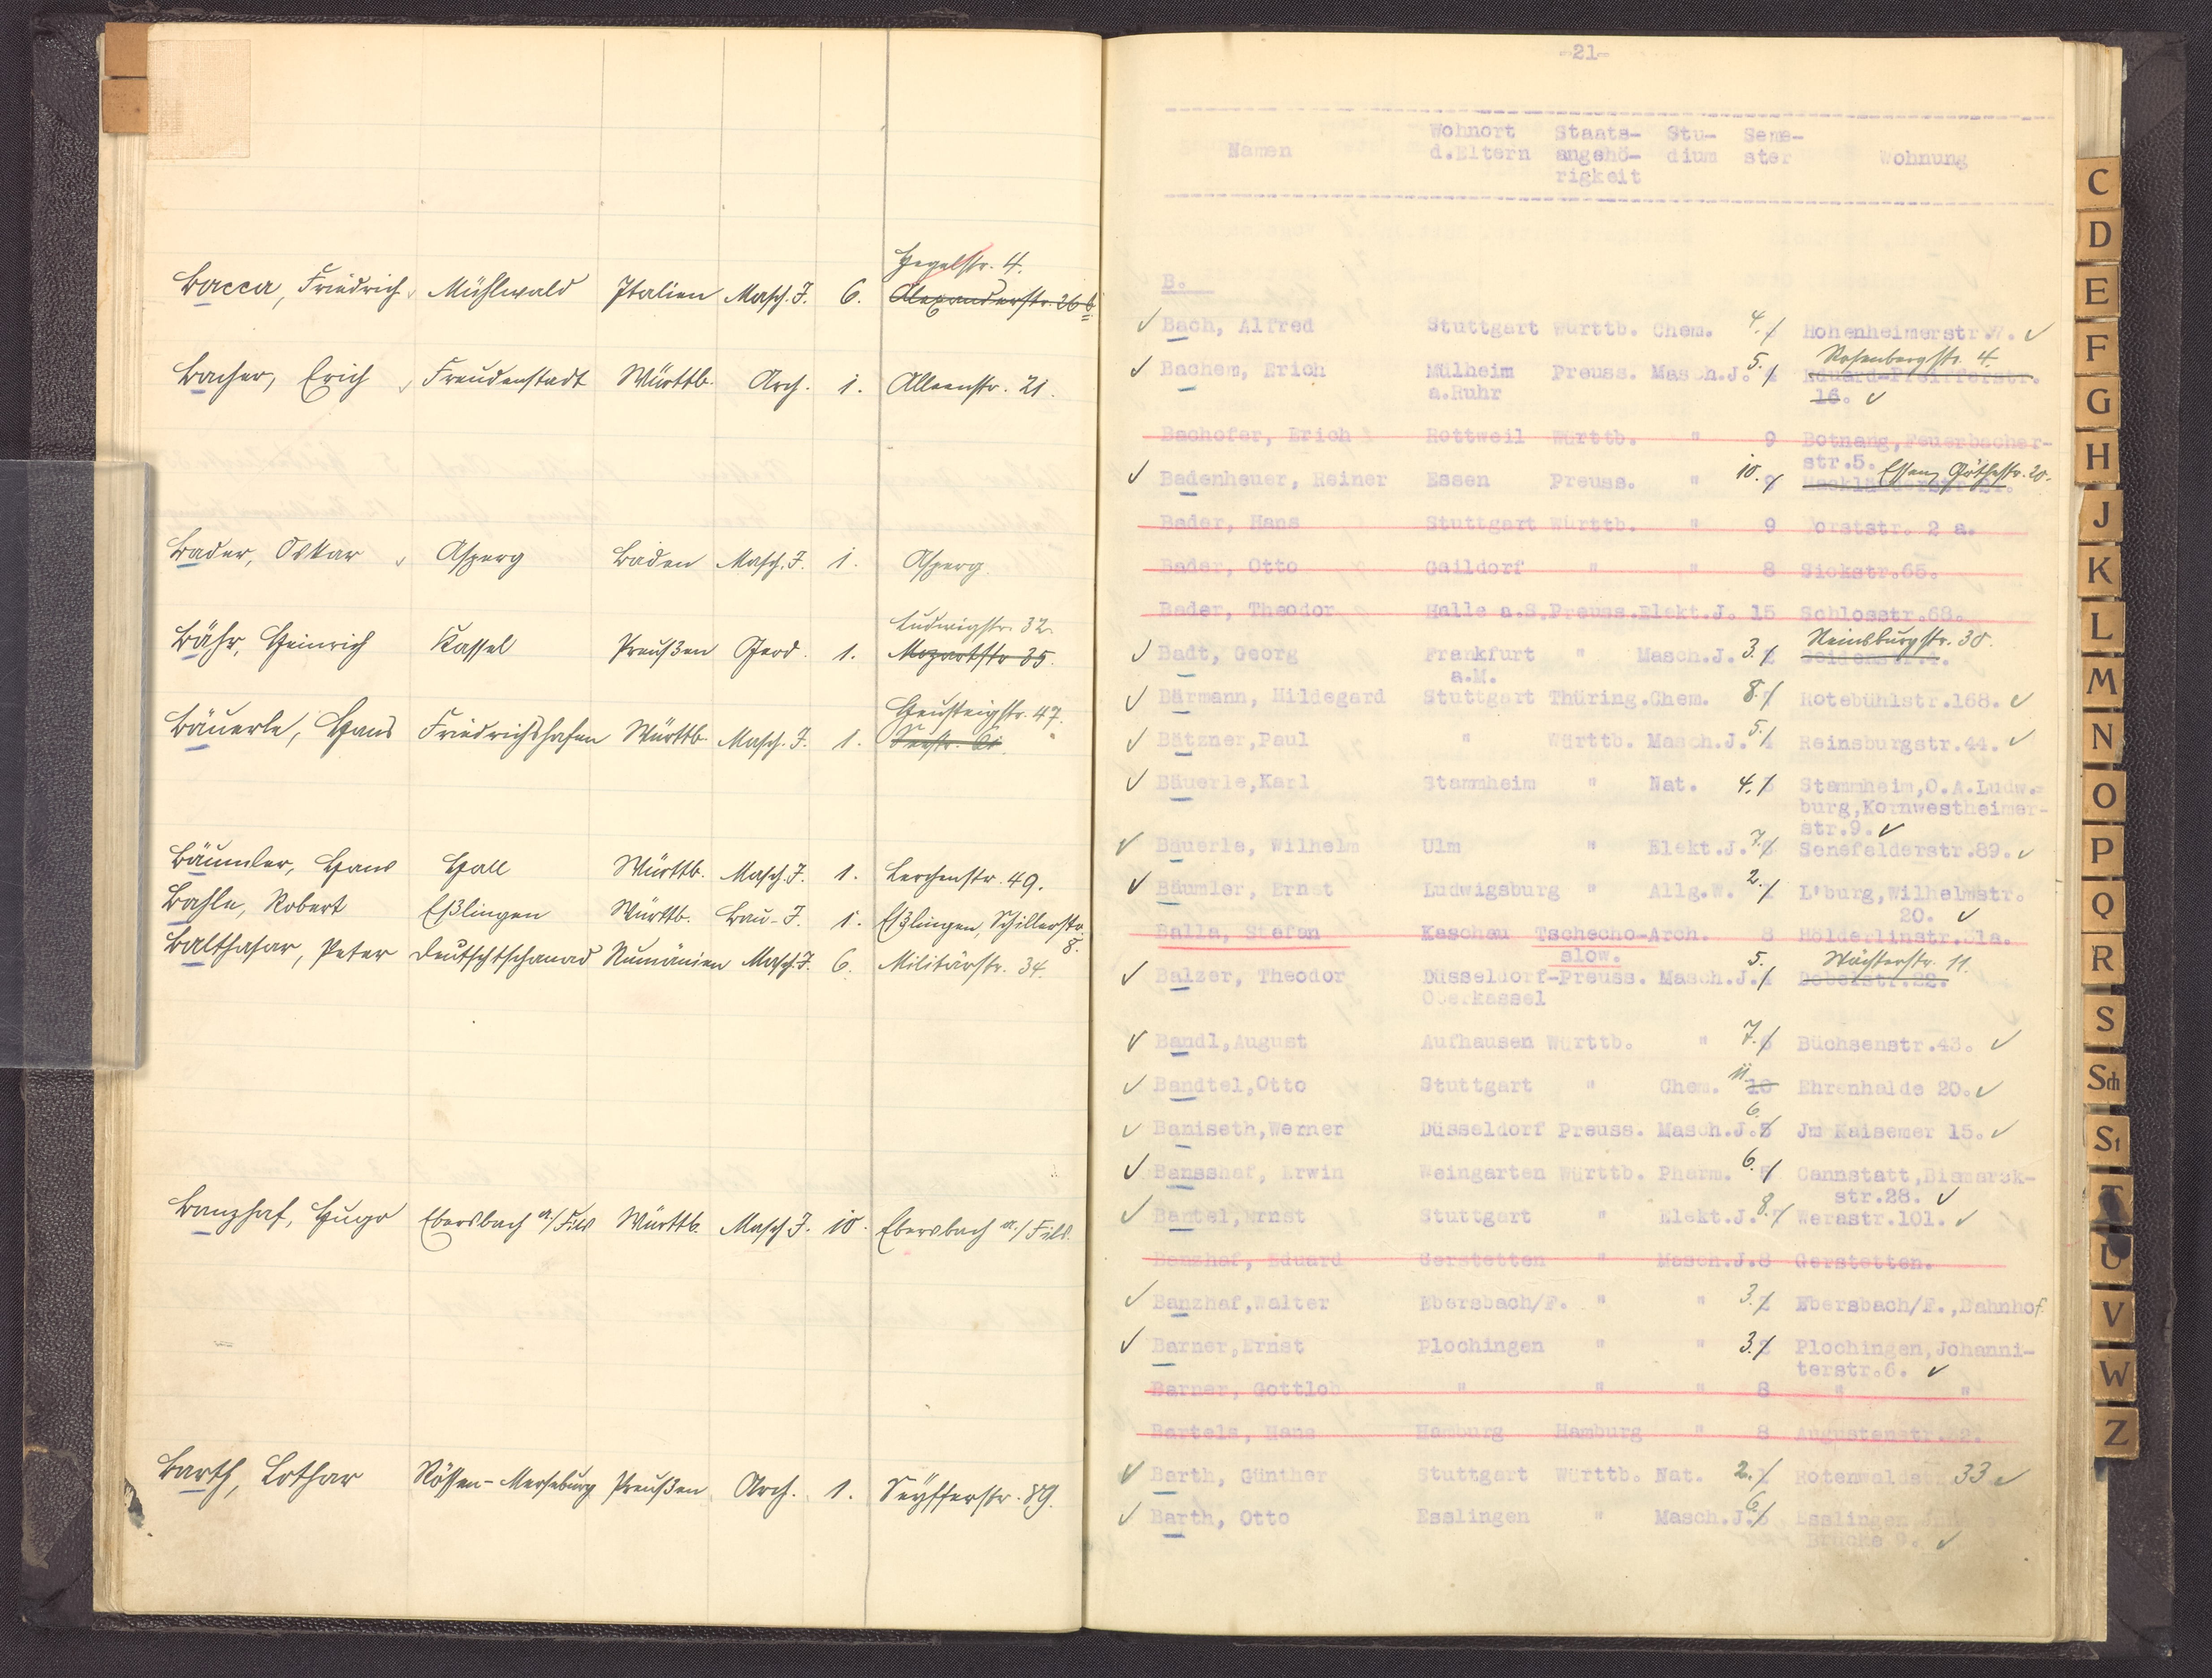 Hegelstr. 4.
Bacca, Friedrich Mühlwald Italien Masch. J. 6. Alexanderstr. 26 b
Bacher, Erich Freudenstadt Württb. Arch. 1. Alleenstr. 21.
Bader, Oskar Asperg Baden Masch. J. 1. Asperg.
Ludwigstr. 32.
Bähr, Heinrich Kassel Preußen Geod. 1. Mozartstr 35.
Heusteigstr. 47.
Bäuerle, Hans Friedrichshafen Württb. Masch. J. 1.
Bäumler, Hans Hall Württb. Masch. J. 1. Lerchenstr. 49.
Bahle, Robert Eßlingen Württb. Bau-J. 1. Eßlingen, Schillerstr.
8.
Balthasar, Peter Deutschtschanad Rumänien Masch. J. 6. Militärstr. 34.
Banzhaf, Hugo Ebersbach a./Fils Württb. Masch J. 10. Ebersbach a./Fils.
Barth, Lothar Rössen-Merseburg Preußen Arch. 1. Seyfferstr. 89.
-21-
Namen Wohnort d.Eltern Staats-angehö-rigkeit Stu-dium Seme-ster Wohnung
B.
✓ Bach, Alfred Stuttgart Württb. Chem. 4. Hohenheimerstr.7. ✓
5. Rosenbergstr. 4.
✓ Bachem, Erich Mülheim Preuss. Masch.J. 4 Eduard-Pfeifferstr.
a.Ruhr 16. ✓
Bachofer, Erich Rottweil Württb. " 9 Botnang,Feuerbacher-
str.5.
Essen, Göthestr. 20.
✓ Badenheuer, Heiner Essen Preuss. " 10. 9 Hackländerstr.21.
Bader, Hans Stuttgart Württb. " 9 orststr. 2 a.
Bader, Otto Gaildorf " " 8 Sickstr.65.
Bader, Theodor Halle a.S.Preuss.Elekt.J. 15 Schlosstr.68.
Reinsburgstr. 30.
✓ Badt, Georg Frankfurt " Masch.J. 3. 2 Seidenstr.4.
a.M.
✓ Bärmann, Hildegard Stuttgart Thüring.Chem. 8. 7 Rotebühlstr.168. ✓
✓ Bätzner,Paul " Württb. Masch.J. 5. 4 Reinsburgstr.44. ✓
✓ Bäuerle,Karl Stammheim " Nat. 4. 3 Stammheim,O.A.Ludw.=
burg,Kornwestheimer-
str.9. ✓
✓ Bäuerle, Wilhelm Ulm " Elekt.J. 7. 6 Senefelderstr.89. ✓
✓ Bäumler, Ernst Ludwigsburg " Allg.W. 2. 1 L'burg,Wilhelmstr.
20. ✓
Balla, Stefan Kaschau Tschecho-Arch. 8 Hölderlinstr.31a.
slow.
5. Wächterstr. 11.
✓ Balzer, Theodor Düsseldorf-Preuss. Masch.J. 4 Dobelstr.22.
Oberkassel
✓ Bandl,August Aufhausen Württb. " 7. 6 Büchsenstr.43. ✓
✓ Bandtel,Otto Stuttgart " Chem. 11. 10 Ehrenhalde 20. ✓
✓ Baniseth,Werner Düsseldorf Preuss. Masch.J. 6. 5 Jm Kaisemer 15. ✓
✓ Bansshaf, Erwin Weingarten Württb. Pharm. 6. Cannstatt,Bismarck-
str.28. ✓
✓ Bantel,Ernst Stuttgart " Elekt.J. 8. 7 Werastr.101. ✓
Banzhaf, Eduard Gerstetten " Masch.J.8 Gerstetten.
✓ Banzhaf,Walter Ebersbach/F. " " 3. 2 Ebersbach/F.,Bahnhof
✓ Barner,Ernst Plochingen " " 3. 2 Plochingen,Johanni-
terstr.6. ✓
Barner, Gottlob " " " 8 " "
Bartels, Hans Hamburg Hamburg " 8 Augustenstr.
✓ Barth, Günther Stuttgart Württb. Nat. 2. 1 Rotenwaldst 33 ✓
✓ Barth, Otto Esslingen " Masch.J. 6. 5 Esslingen
Brücke 9. ✓
C
D
E
F
G
H
J
K
L
M
N
O
P
Q
R
S
Sch
St
T
U
V
W
Z